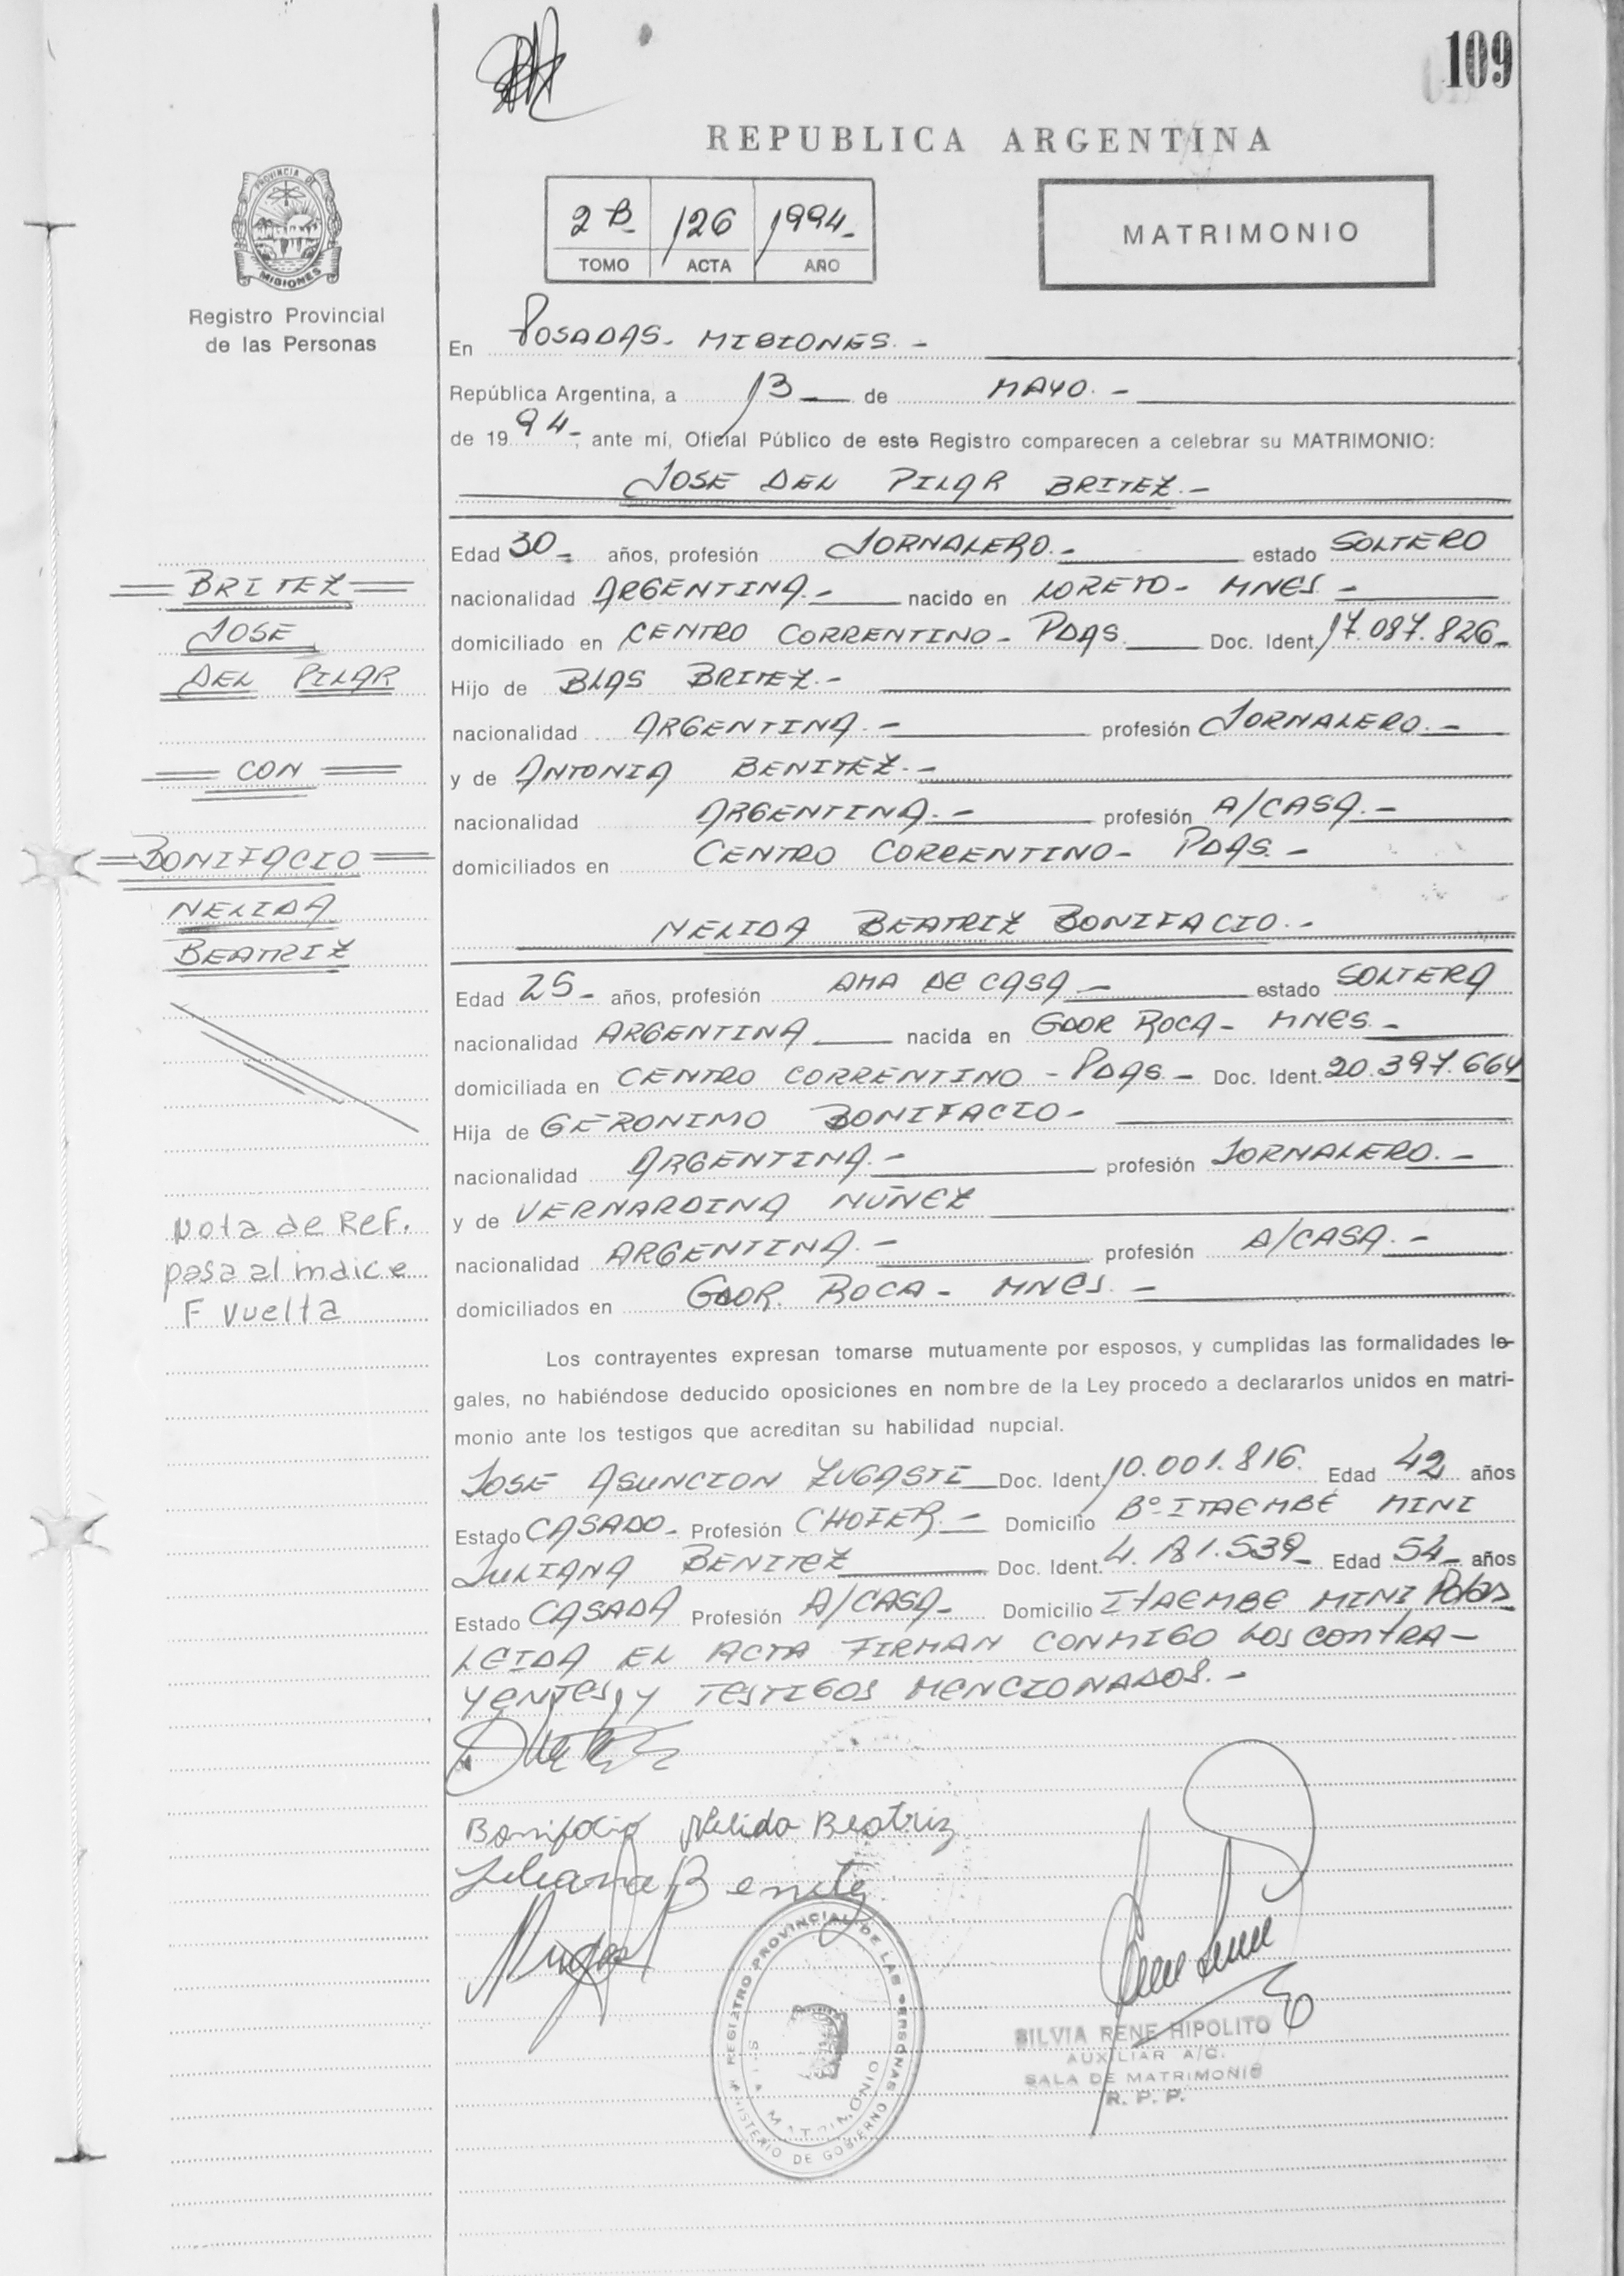 109
REPUBLICA ARGENTINA
PROVINCIA DE
MISIONES
Registro Provincial
de las Personas
2 B- 126 1994-
TOMO ACTA AÑO
MATRIMONIO
En POSADAS- MISIONES.-
República Argentina, a 13 de MAYO.-
de 1994-, ante mí, Oficial Público de este Registro comparecen a celebrar su MATRIMONIO:
JOSE DEL PILAR BRITEZ.-
Edad 30- años, profesión JORNALERO.- estado SOLTERO
nacionalidad ARGENTINA.- nacido en LORETO- MNES.-
domiciliado en CENTRO CORRENTINO- PDAS. Doc. Ident. 17.087.826-
Hijo de BLAS BRITEZ.-
nacionalidad ARGENTINA.- profesión JORNALERO.-
y de ANTONIA BENITEZ.-
nacionalidad ARGENTINA.- profesión A/CASA.-
domiciliados en CENTRO CORRENTINO- PDAS.-
BRITEZ
JOSE
DEL PILAR
CON
BONIFACIO
NELIDA
BEATRIZ
NELIDA BEATRIZ BONIFACIO.-
Edad 25- años, profesión AMA DE CASA- estado SOLTERA
nacionalidad ARGENTINA nacida en GDOR ROCA- MNES.-
domiciliada en CENTRO CORRENTINO - PDAS- Doc. Ident. 20.397.664
Hija de GERONIMO BONIFACIO-
nacionalidad ARGENTINA.- profesión JORNALERO.-
y de VERNARDINA NUÑEZ
nacionalidad ARGENTINA.- profesión A/CASA.-
domiciliados en GDOR. ROCA- MNES.-
Nota de Ref.
pasa al indice
F Vuelta
Los contrayentes expresan tomarse mutuamente por esposos, y cumplidas las formalidades le-
gales, no habiéndose deducido oposiciones en nombre de la Ley procedo a declararlos unidos en matri-
monio ante los testigos que acreditan su habilidad nupcial.
JOSE ASUNCION ZUGASTI Doc. Ident. 10.001.816. Edad 42 años
Estado CASADO- Profesión CHOFER.- Domicilio Bº- ITAEMBÉ MINI
JULIANA BENITEZ Doc. Ident. 4.181.539- Edad 54- años
Estado CASADA Profesión A/CASA- Domicilio ITAEMBE MINI Pdas
LEIDA EL ACTA FIRMAN CONMIGO LOS CONTRA-
YENTES, Y TESTIGOS MENCIONADOS.-
Bonifacio Nelida Beatriz
Juliana Benitez
REGISTRO PROVINCIAL DE LAS PERSONAS
MINISTERIO DE GOBIERNO
SALA MATRIMONIO
SILVIA RENE HIPOLITO
AUXILIAR A/C.
SALA DE MATRIMONIO
R. P. P.